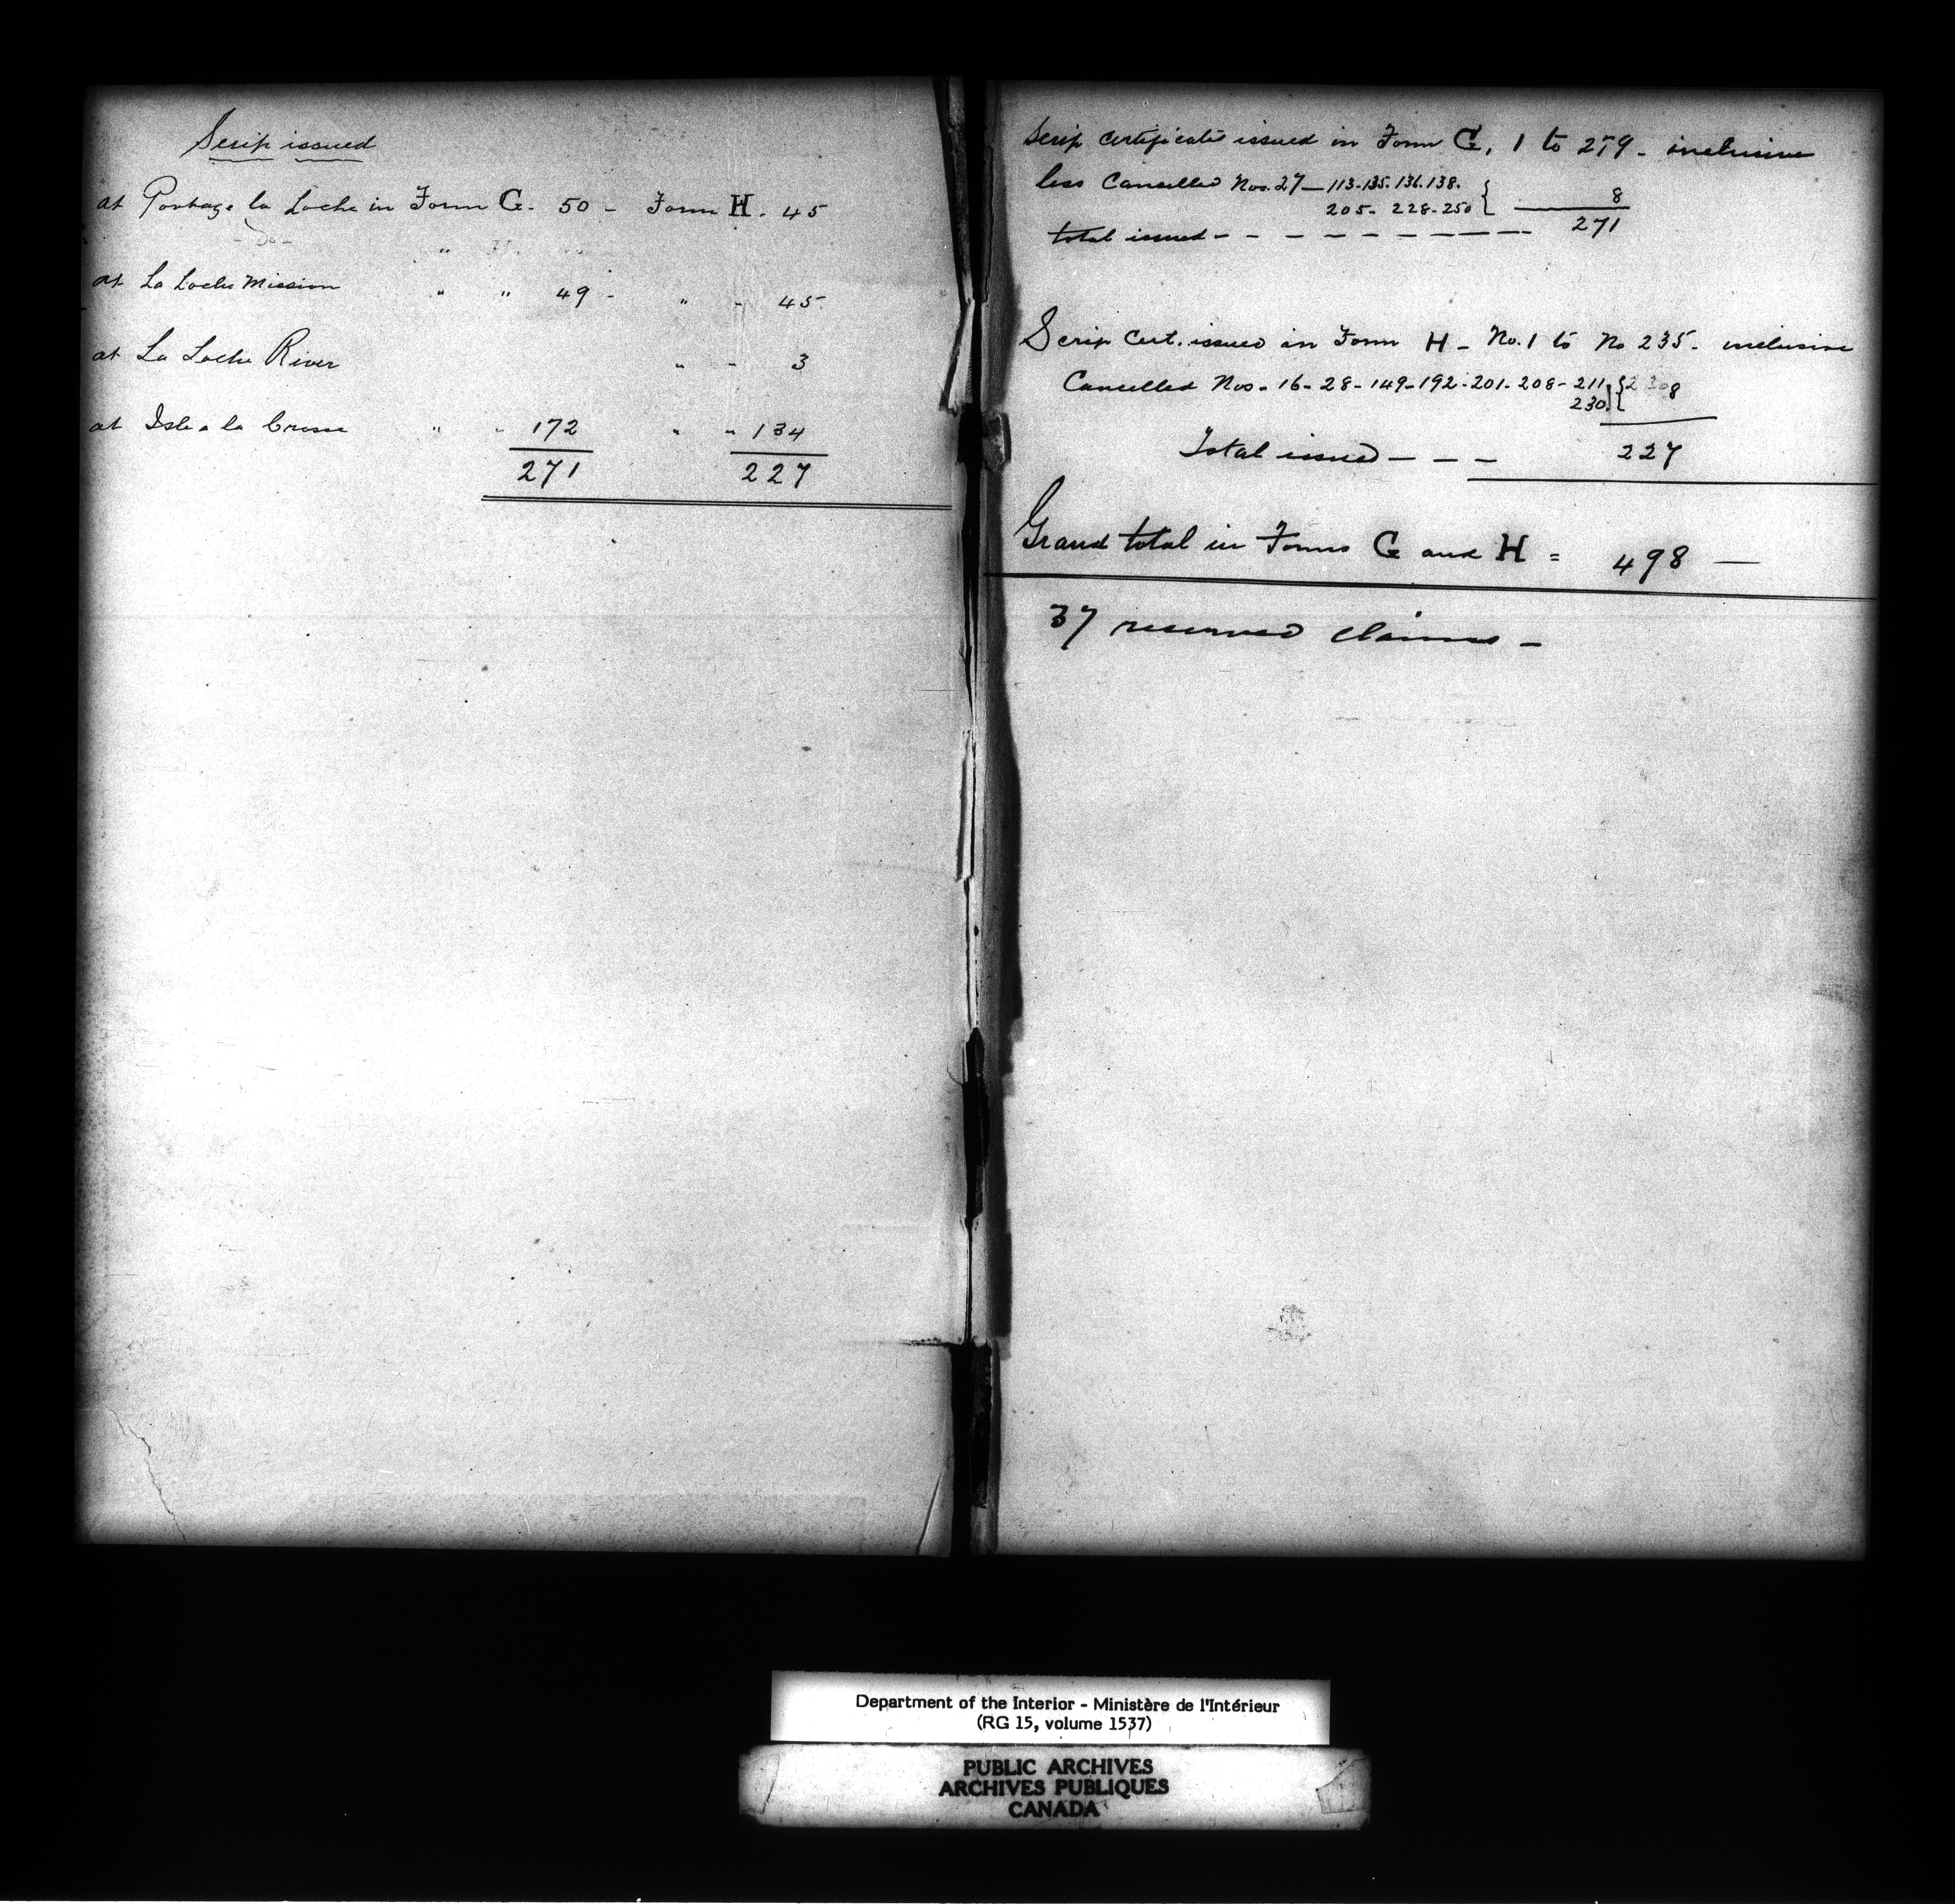 Scrip issued
at Portage la Loche in Form G. 50 - Form H. 45
- Do - "
at La Loche Mission " " 49 - " - 45.
at La Loche River " - 3
at Isle a la Crosse " - 172 " - 134
271 227
Scrip certificate issued in Form G. 1 to 279 - inclusive
less Cancelled Nos. 27 - 113-135.136.138.
205 - 228 - 250 } 8
total issued - - - - - - - - - 271
Scrip Cert. issued in Form H - No. 1 to No 235 - inclusive
Cancelled Nos - 16 - 28 - 149 - 192 - 201 - 208 - 211
230. } 8
Total issued - - - 227
Grand total in Forms G and H = 498 -
37 reserved claims -
Department of the Interior - Ministère de l'Intérieur
(RG 15, volume 1537)
PUBLIC ARCHIVES
ARCHIVES PUBLIQUES
CANADA